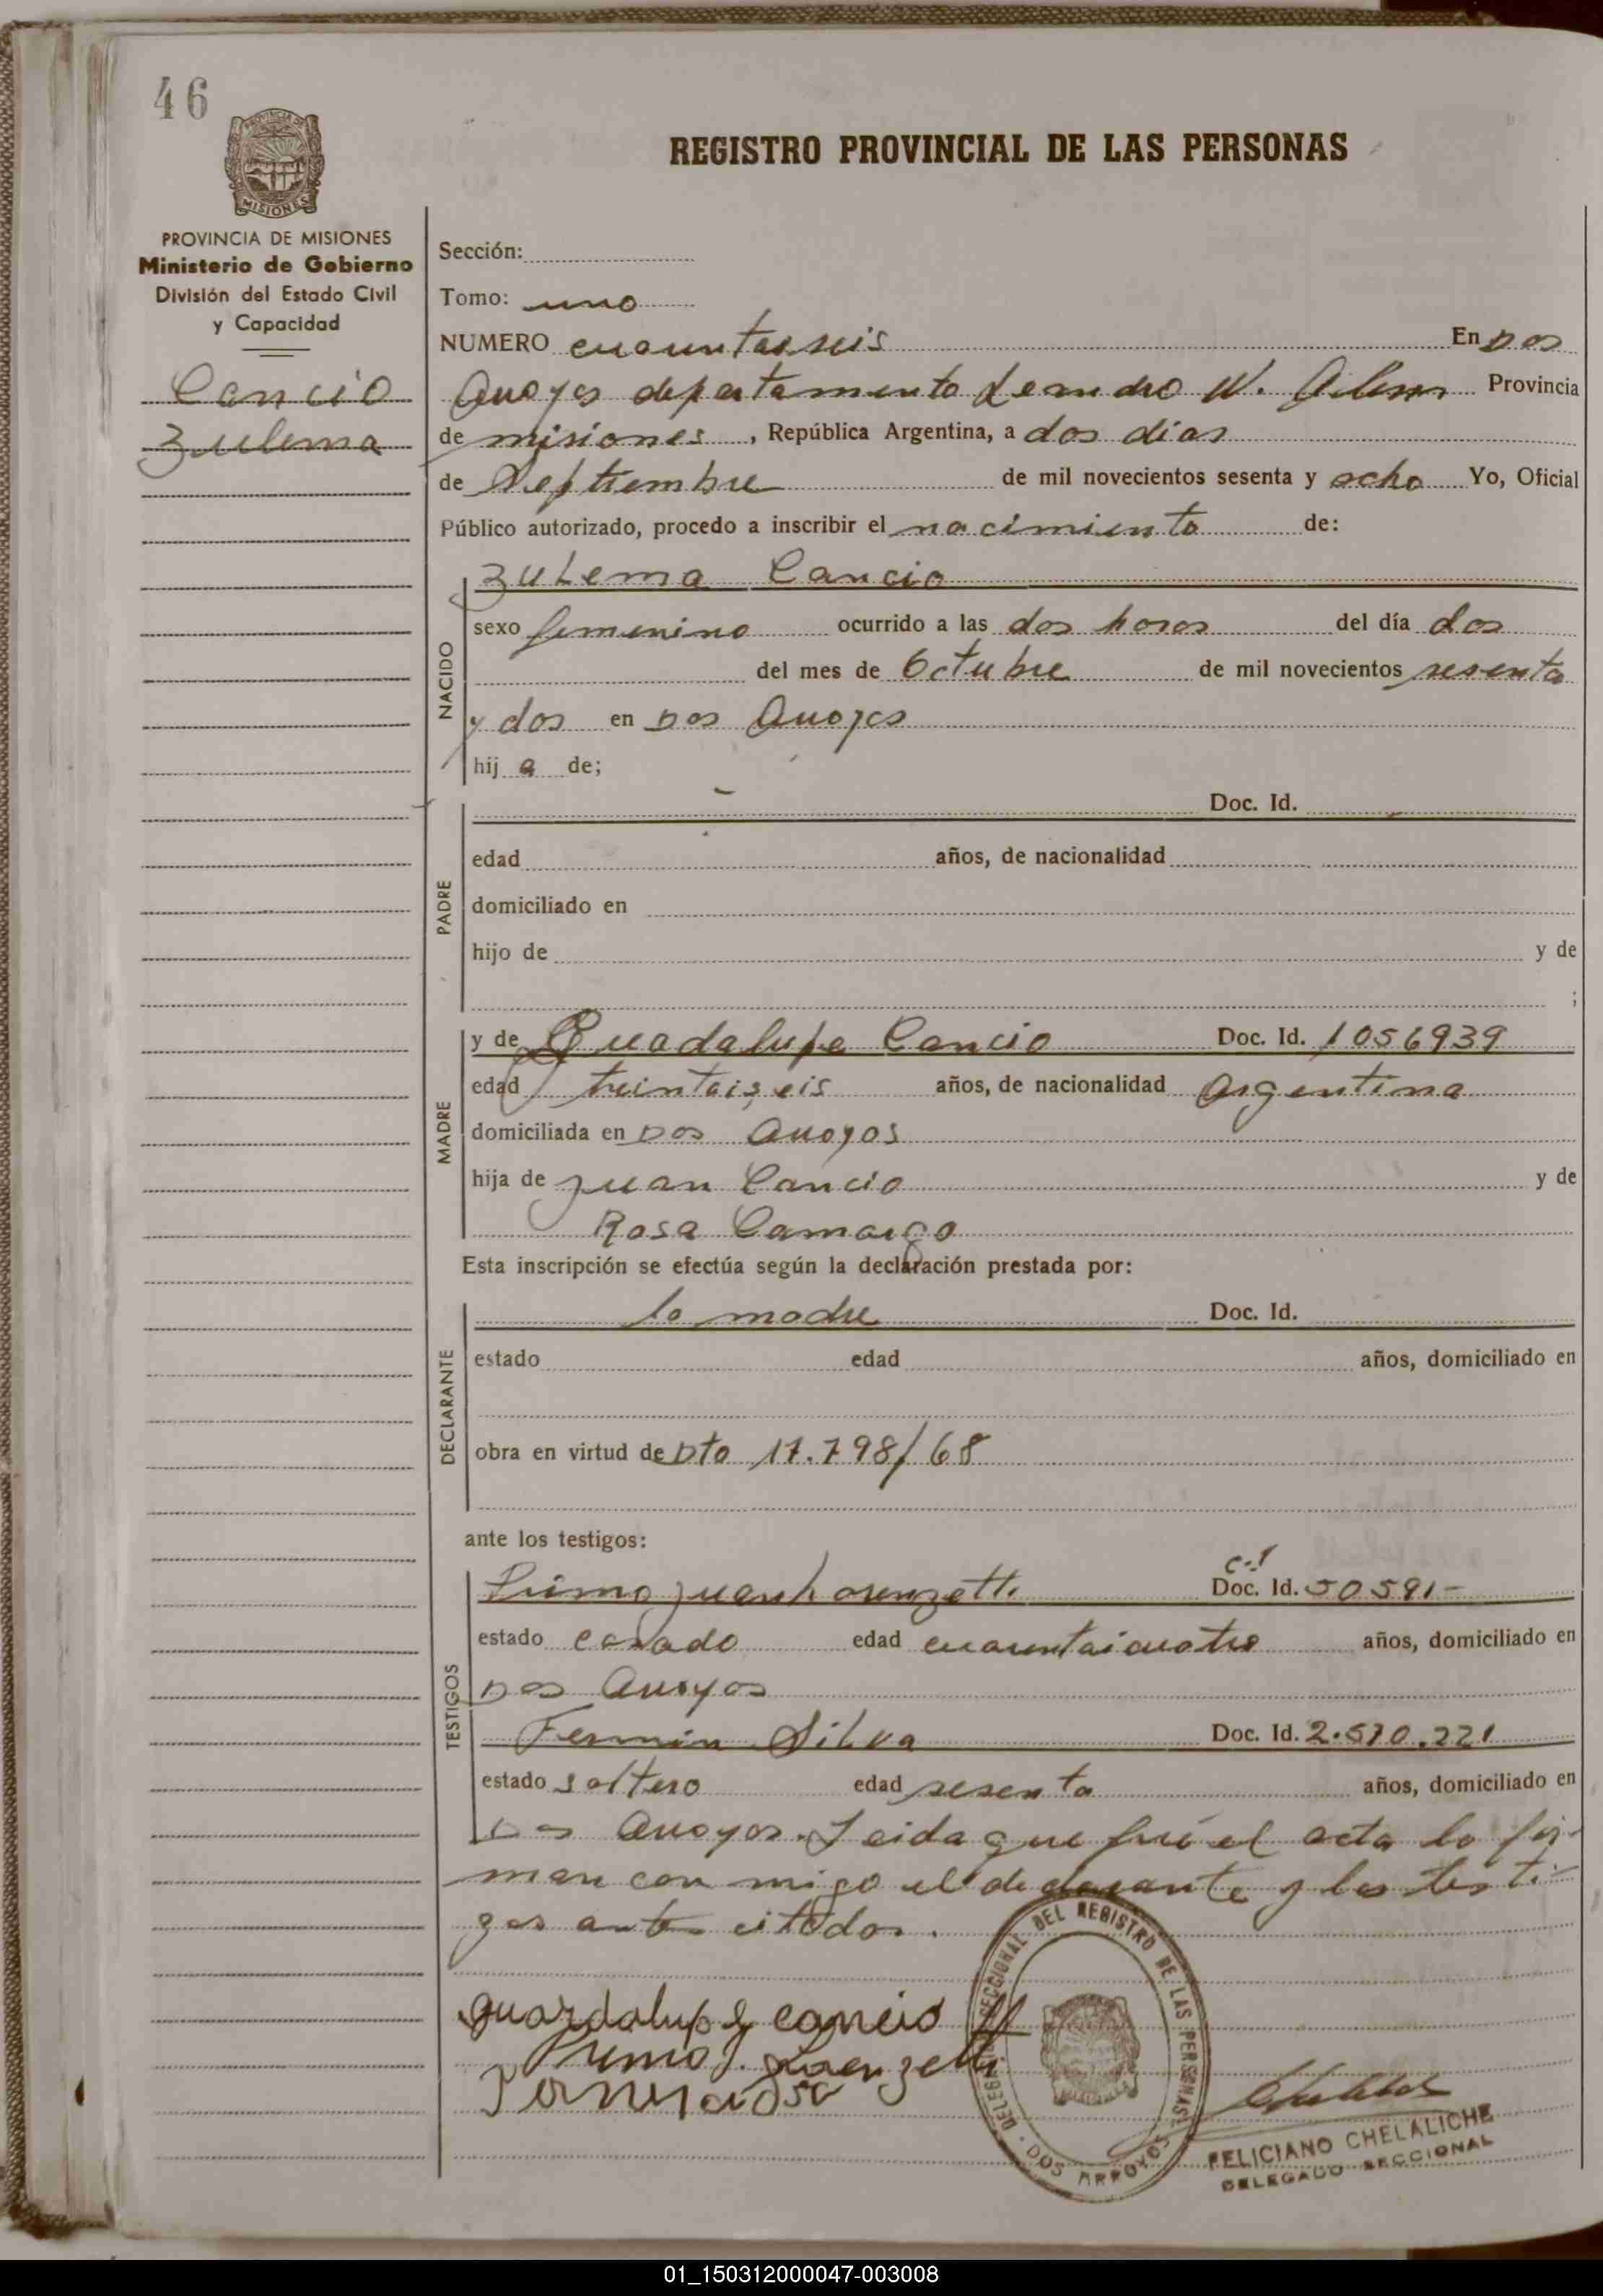 46
PROVINCIA DE
MISIONES
REGISTRO PROVINCIAL DE LAS PERSONAS
PROVINCIA DE MISIONES
Ministerio de Gobierno
División del Estado Civil
y Capacidad
Cancio
Zulema
Sección:
Tomo: uno
NUMERO cuarentaiseis En Dos
Arroyos departamento Leandro N. Alem Provincia
de misiones, República Argentina, a dos dias
de Septiembre de mil novecientos sesenta y ocho Yo, Oficial
Público autorizado, procedo a inscribir el nacimiento de:
NACIDO
Zulema Cancio
sexo femenino ocurrido a las dos horas del día dos
del mes de Octubre de mil novecientos sesenta
y dos en Dos Arroyos
hij a de;
PADRE
Doc. Id.
edad años, de nacionalidad
domiciliado en
hijo de y de
;
MADRE
y de Guadalupe Cancio Doc. Id. 1056939
edad treintaiseis años, de nacionalidad argentina
domiciliada en Dos Arroyos
hija de Juan Cancio y de
Rosa Camargo
Esta inscripción se efectúa según la declaración prestada por:
DECLARANTE
la madre Doc. Id.
estado edad años, domiciliado en
obra en virtud de Dto 17.798/68
ante los testigos:
TESTIGOS
Primo Juan Lorenzetti Doc. Id. 50591-
estado casado edad cuarentaicuatro años, domiciliado en
Dos Arroyos
Fermin Silva Doc. Id. 2.510.221
estado soltero edad sesenta años, domiciliado en
Dos Arroyos. Leida que fué el acta la fir-
man con migo el declarante y los testi-
gos antes citados.
guardalupe cancio
Primo J. Lorenzetti
DELEGACION SECCIONAL DEL REGISTRO DE LAS PERSONAS
DOS ARROYOS
FELICIANO CHELALICHE
DELEGADO SECCIONAL
01_150312000047-003008